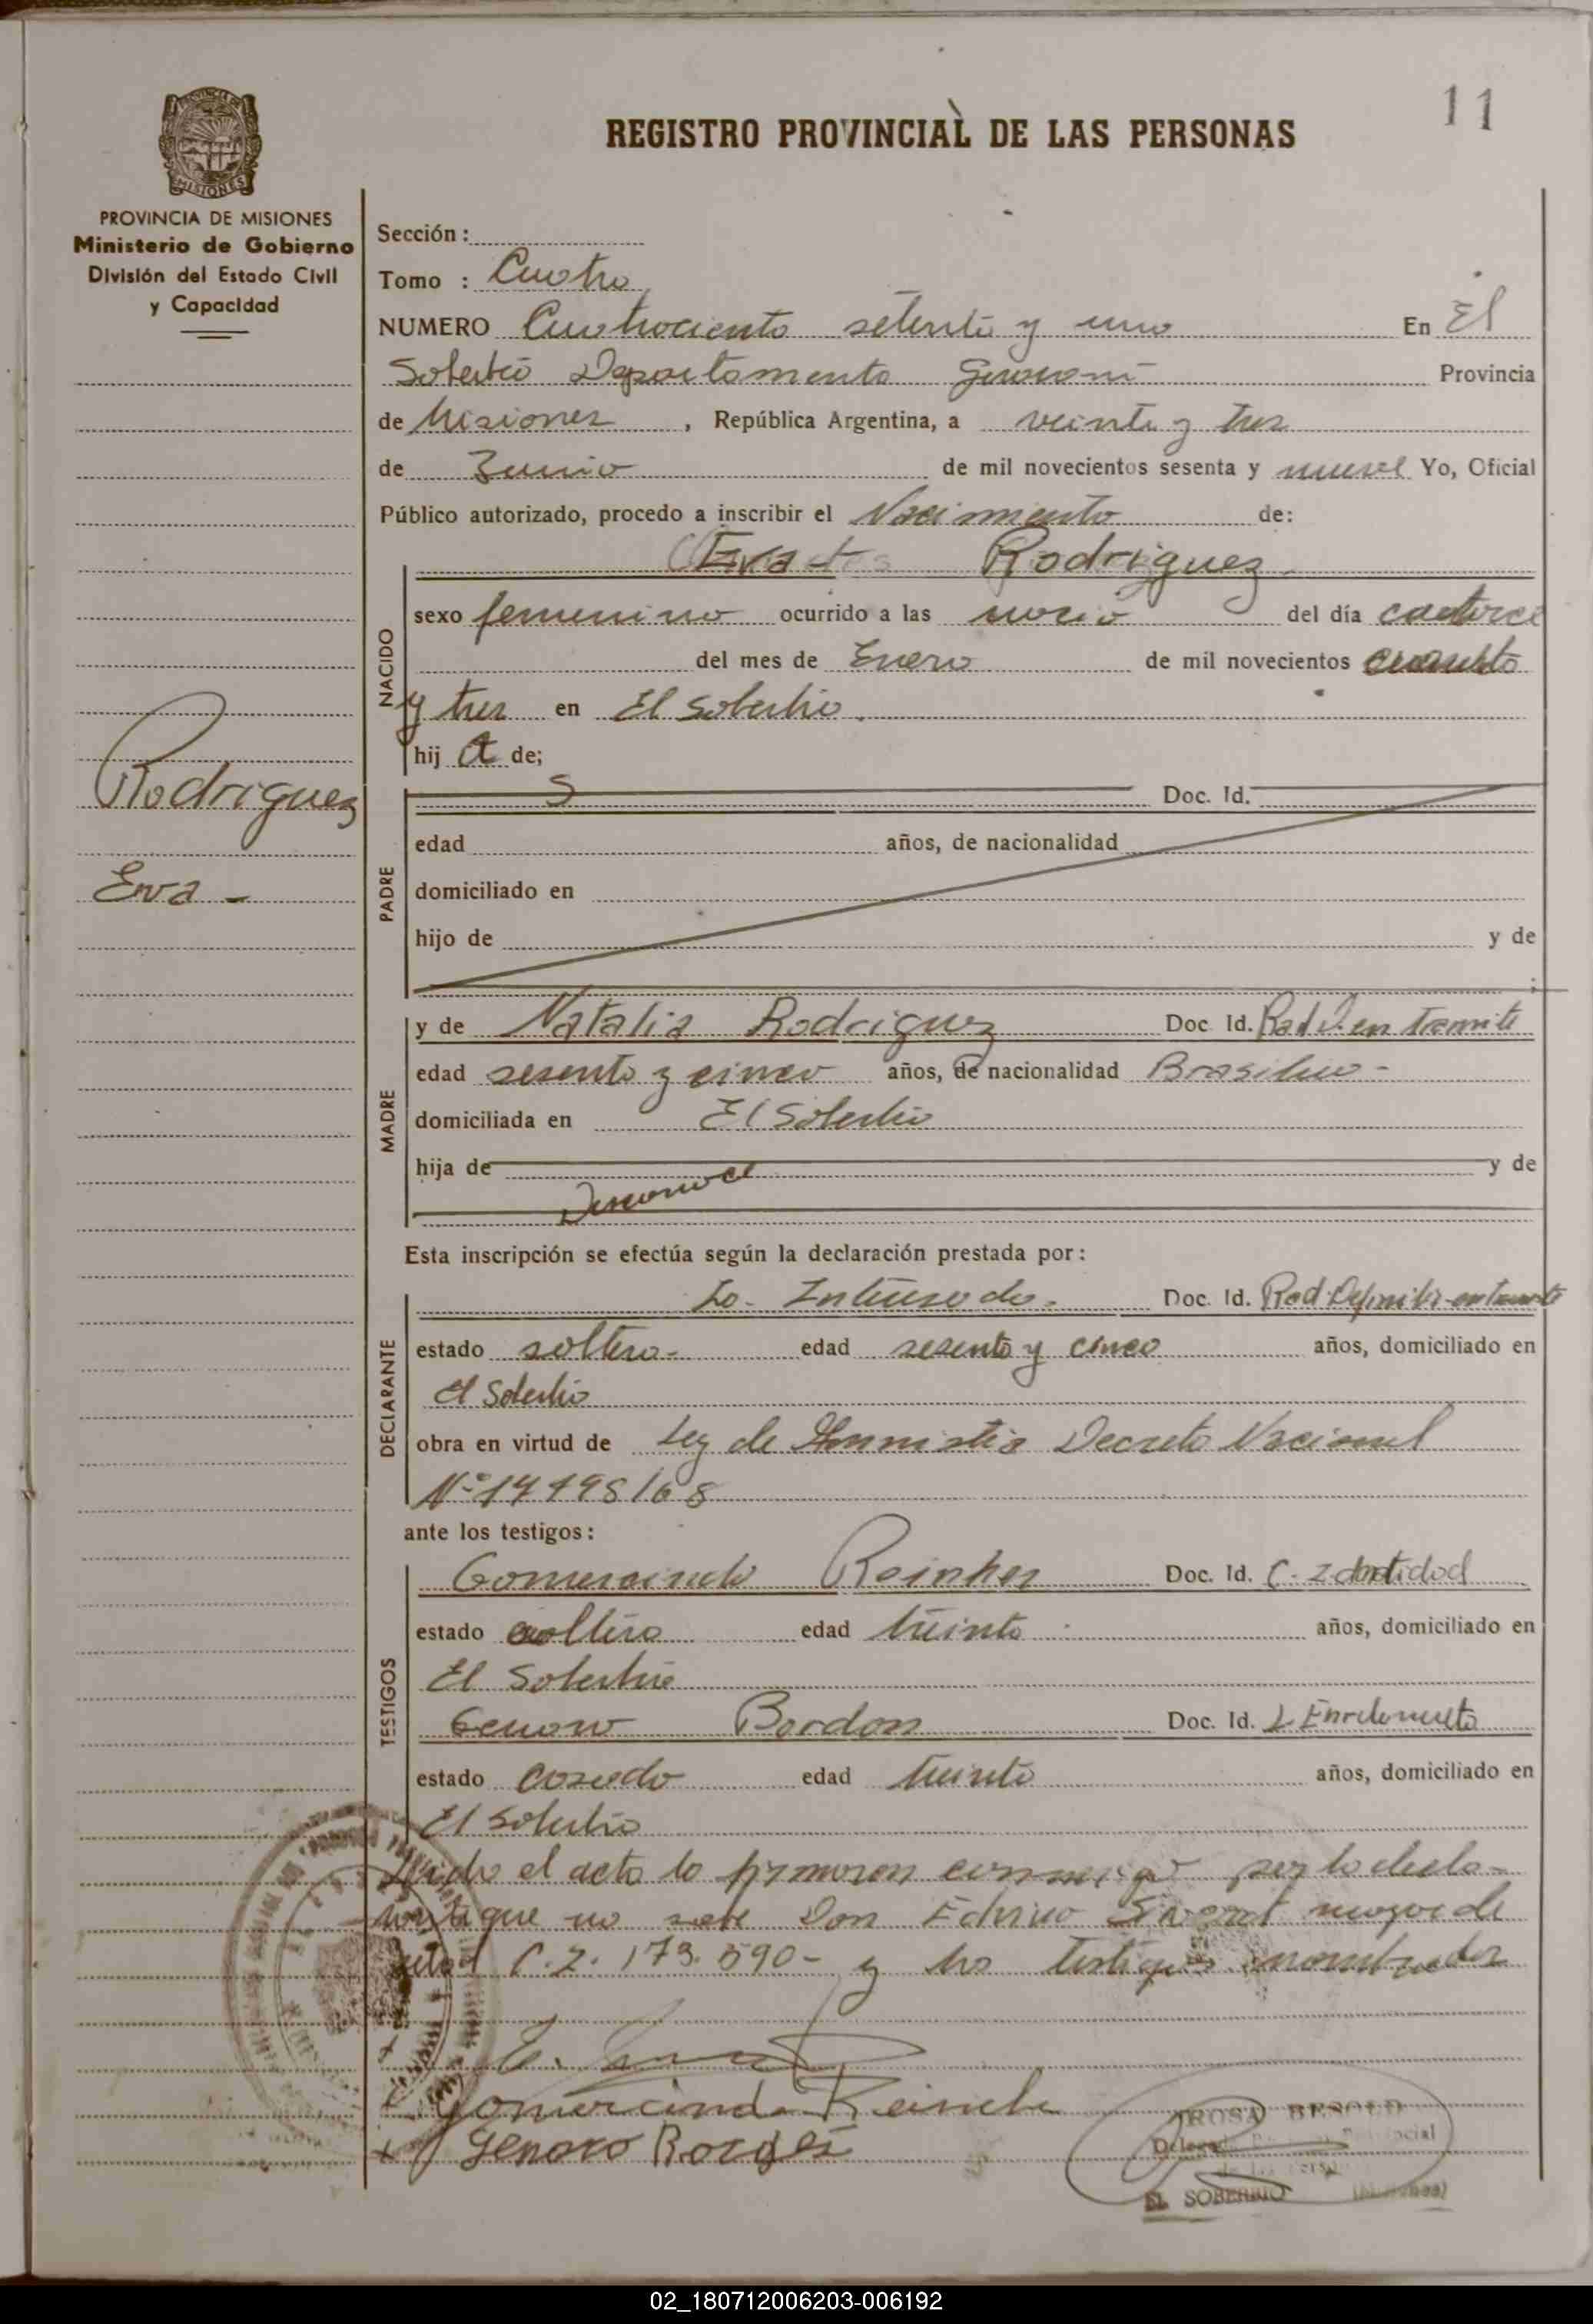 11
REGISTRO PROVINCIAL DE LAS PERSONAS
PROVINCIA DE MISIONES
Ministerio de Gobierno
División del Estado Civil
y Capacidad
Sección :
Tomo : Cuatro
NUMERO Cuatrociento setenta y uno En El
Soberbio Departamento Guarani Provincia
de Misiones , República Argentina, a veinte y tres
de Junio de mil novecientos sesenta y nueve Yo, Oficial
Público autorizado, procedo a inscribir el Nacimiento de:
Eva Rodriguez
NACIDO
sexo femenino ocurrido a las del día catorce
del mes de Enero de mil novecientos cuarenta
y tres en El Soberbio.
hij a de;
Rodriguez
Eva -
PADRE
Doc. Id.
edad años, de nacionalidad
domiciliado en
hijo de y de
MADRE
y de Natalia Rodriguez Doc Id. Rad D. en Tramite
edad sesenta y cinco años, de nacionalidad Brasilera -
domiciliada en El Soberbio
hija de y de
Desconoce
Esta inscripción se efectúa según la declaración prestada por:
DECLARANTE
La Interesada. Doc. Id. Rad. Definitiv en tramite
estado soltera - edad sesenta y cinco años, domiciliado en
El Soberbio
obra en virtud de Ley de Amnistia Decreto Nacional
ante los testigos:
TESTIGOS
Gomercindo Reinher Doc. Id. C. Identidad
estado soltero edad treinta años, domiciliado en
El Soberbio
Genaro Bordon Doc. Id. L Enrolamiento
estado casado edad treinta años, domiciliado en
El Soberbio
Leido el acta la firmaron conmigo por la decla-
rante que no sabe Don mayor de
edad C.I. 173.590- y los testigos nombrados
Gomercindo
Genaro
ROSA BESOLD
EL SOBERBIO (Misiones)
02_180712006203-006192